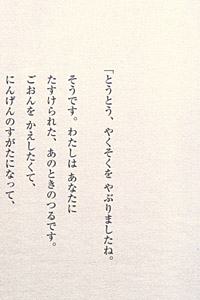 「とうとう、やくそくを やぶりましたね。
そうです。わたしは あなたに
たすけられた、あのときのつるです。
ごおんを かえしたくて、
にんげんのすがたになって、